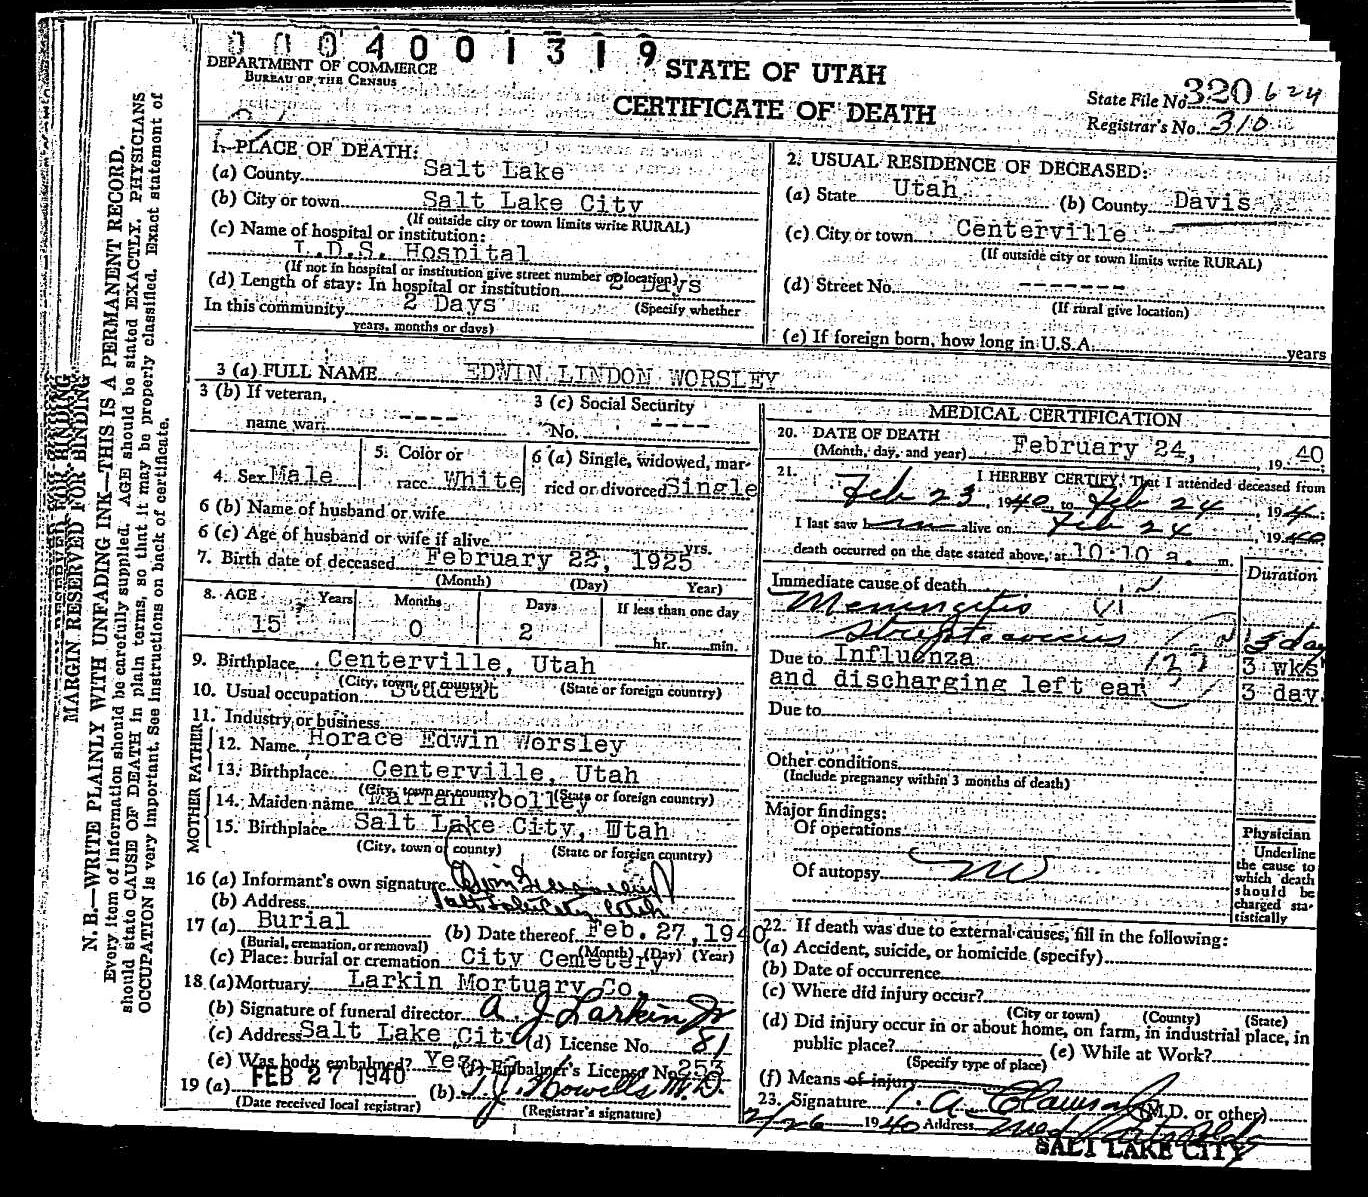 0004001319
DEPARTMENT OF COMMERCE
BUREAU OF THE CENSUS
STATE OF UTAH
CERTIFICATE OF DEATH
State File No. 320 624
Registrar's No. 310
MARGIN RESERVED FOR BINDING
N. B.—WRITE PLAINLY WITH UNFADING INK—THIS IS A PERMANENT RECORD.
Every item of information should be carefully supplied. AGE should be stated EXACTLY. PHYSICIANS
should state CAUSE OF DEATH in plain terms, so that it may be properly classified. Exact statement of
OCCUPATION is very important. See instructions on back of certificate.
1. PLACE OF DEATH:
(a) County Salt Lake
(b) City or town Salt Lake City
(If outside city or town limits write RURAL)
(c) Name of hospital or institution:
L.D.S. Hospital
(If not in hospital or institution give street number or location)
(d) Length of stay: In hospital or institution 2 Days
In this community 2 Days (Specify whether
years, months or days)
2. USUAL RESIDENCE OF DECEASED:
(a) State Utah (b) County Davis
(c) City or town Centerville
(If outside city or town limits write RURAL)
(d) Street No. -------
(If rural give location)
(e) If foreign born, how long in U.S.A. years
3 (a) FULL NAME EDWIN LINDON WORSLEY
3 (b) If veteran, name war ----
3 (c) Social Security No. ----
4. Sex Male
5. Color or race White
6 (a) Single, widowed, married or divorced Single
6 (b) Name of husband or wife
6 (c) Age of husband or wife if alive yrs.
7. Birth date of deceased February 22, 1925
(Month) (Day) Year)
8. AGE Years Months Days If less than one day
15 0 2 hr. min.
9. Birthplace Centerville, Utah
(City, town, or county) (State or foreign country)
10. Usual occupation Student
11. Industry or business
FATHER
12. Name Horace Edwin Worsley
13. Birthplace Centerville, Utah
(City, town or county) (State or foreign country)
MOTHER
14. Maiden name Marian Woolley
15. Birthplace Salt Lake City, Utah
(City, town or county) (State or foreign country)
16 (a) Informant's own signature
(b) Address Salt Lake City, Utah
17 (a) Burial (b) Date thereof Feb. 27, 1940
(Burial, cremation, or removal) (Month) (Day) (Year)
(c) Place: burial or cremation City Cemetery
18 (a) Mortuary Larkin Mortuary Co.
(b) Signature of funeral director A J Larkin Jr
(c) Address Salt Lake City (d) License No. 81
(e) Was body embalmed? Yes (f) Embalmer's License No 253
19 (a) FEB 27 1940 (b) T. J. Howells M.D.
(Date received local registrar) (Registrar's signature)
MEDICAL CERTIFICATION
20. DATE OF DEATH
(Month, day, and year) February 24, 1940
21. I HEREBY CERTIFY, That I attended deceased from
Feb 23, 1940 to Feb 24, 194
I last saw h im alive on Feb 24, 1940
death occurred on the date stated above, at 10:10 a. m.
Duration
Immediate cause of death
Meningitis
Streptococcus
Due to Influenza 3 wks
and discharging left ear 3 day
Due to
Other conditions
(Include pregnancy within 3 months of death)
Major findings:
Of operations
Of autopsy no
Physician
Underline
the cause to
which death
should be
charged sta-
tistically
22. If death was due to external causes, fill in the following:
(a) Accident, suicide, or homicide (specify)
(b) Date of occurrence
(c) Where did injury occur?
(City or town) (County) (State)
(d) Did injury occur in or about home, on farm, in industrial place, in
public place? (e) While at Work?
(Specify type of place)
(f) Means of injury
23. Signature A. Clawson (M.D. or other)
2/26 1940 Address
SALT LAKE CITY